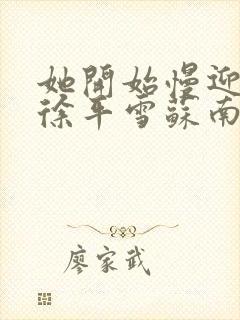 她開始慢迎
徐平雪蘇南
廖家武